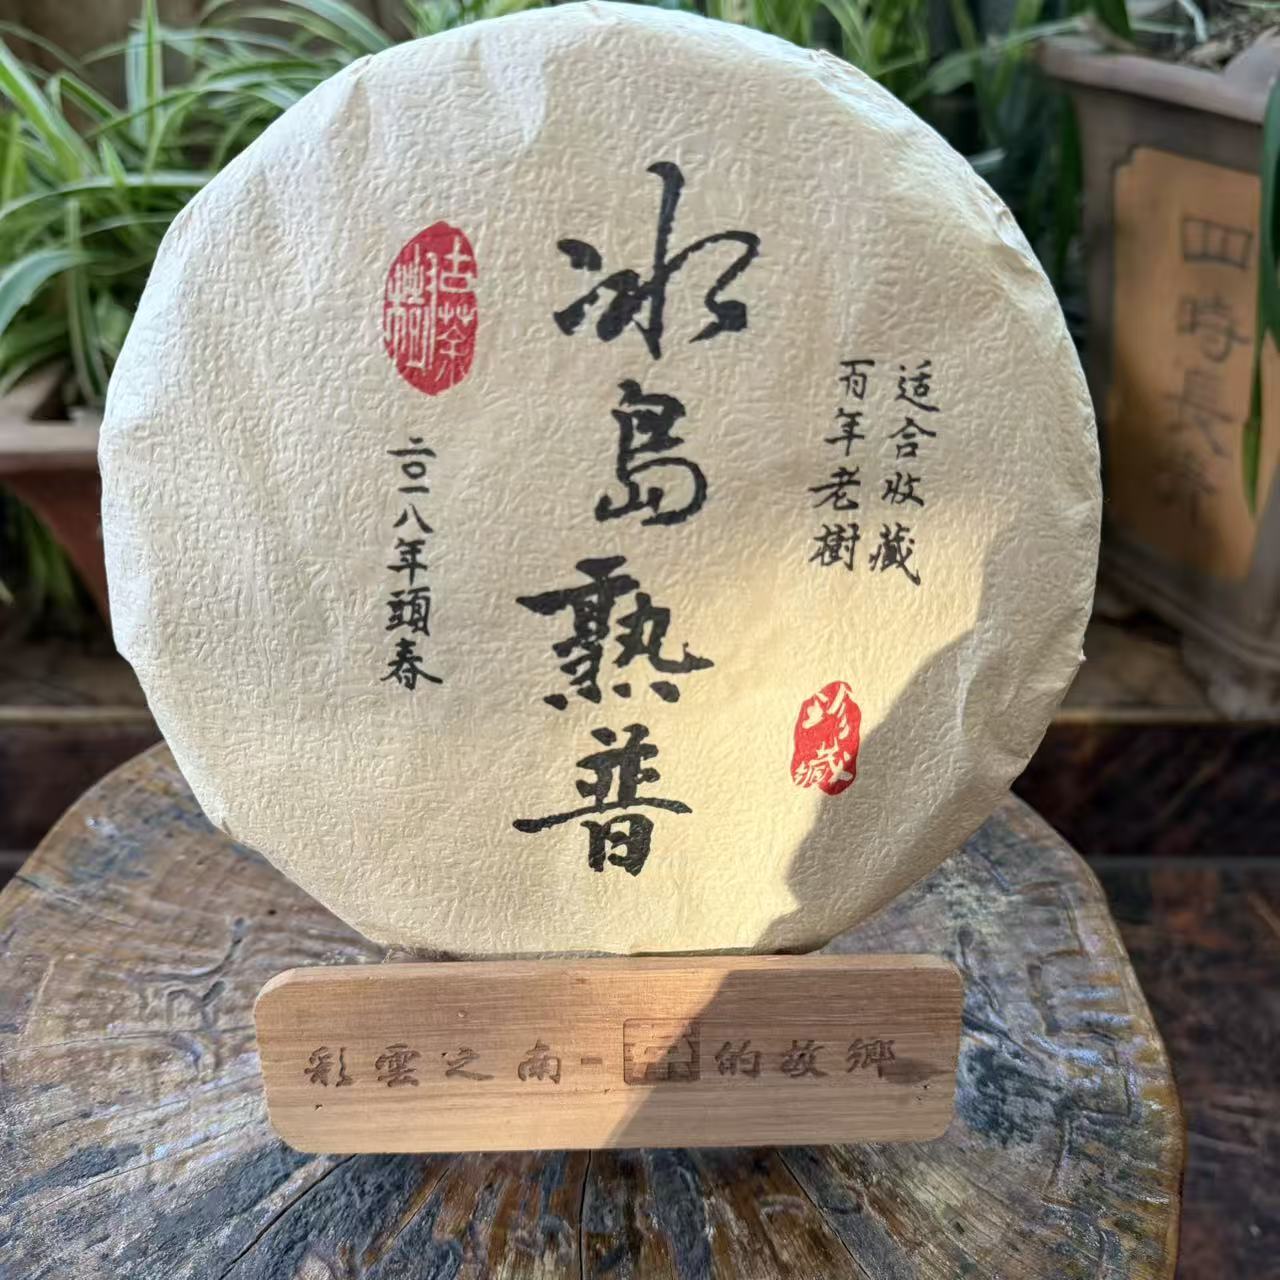 冰島熟普
适合收藏
百年老樹
珍藏
古茶樹
二〇一八年頭春
彩雲之南-茶的故鄉
四時長春